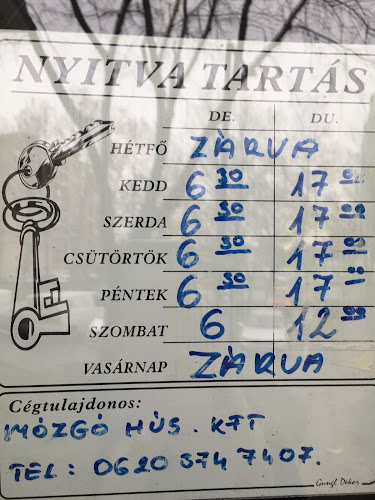 NYITVA TARTÁS
DE. DU.
HÉTFŐ ZÁRVA
KEDD 6 30 17 00
SZERDA 6 30 17 00
CSÜTÖRTÖK 6 30 17 00
PÉNTEK 6 30 17 00
SZOMBAT 6 12 00
VASÁRNAP ZÁRVA
Cégtulajdonos:
MOZGÓ HÚS. KFT
TEL: 0620 374 7407.
Gungl Dekor